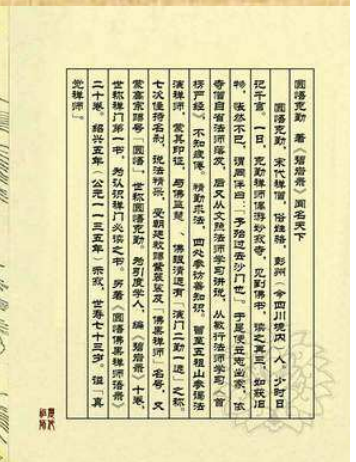 圆悟克勤 著《碧岩录》闻名天下
圆悟克勤，宋代禅僧，俗姓骆，彭州（今四川境内）人，少时日
记千言。一日，克勤禅师偶游妙寂寺，见到佛书，读之再三，如获旧
物，怅然不已，谓同伴曰：“予殆过去沙门也”。于是便立志出家，依
寺僧自省法师落发，后又从文照法师学习讲说，从敏行法师学习《首
楞严经》，不知疲倦，精勤求法，四处参访善知识，留至五祖山参谒法
演禅师，蒙其印证，与佛鉴慧勤、佛眼清远有“演门二勤一远”之称。
七次住持名刹，说法精采，受朝廷敕赐紫袈裟及“佛果禅师”名号，又
蒙高宗赐号“圆悟”，世称圆悟克勤。为引度学人，编《碧岩录》十卷，
世称禅门第一书，为认识禅门必读之书。另著《圆悟佛果禅师语录》
二十卷。绍兴五年（公元一一三五年）示寂，世寿七十三岁。谥“真
觉禅师”。